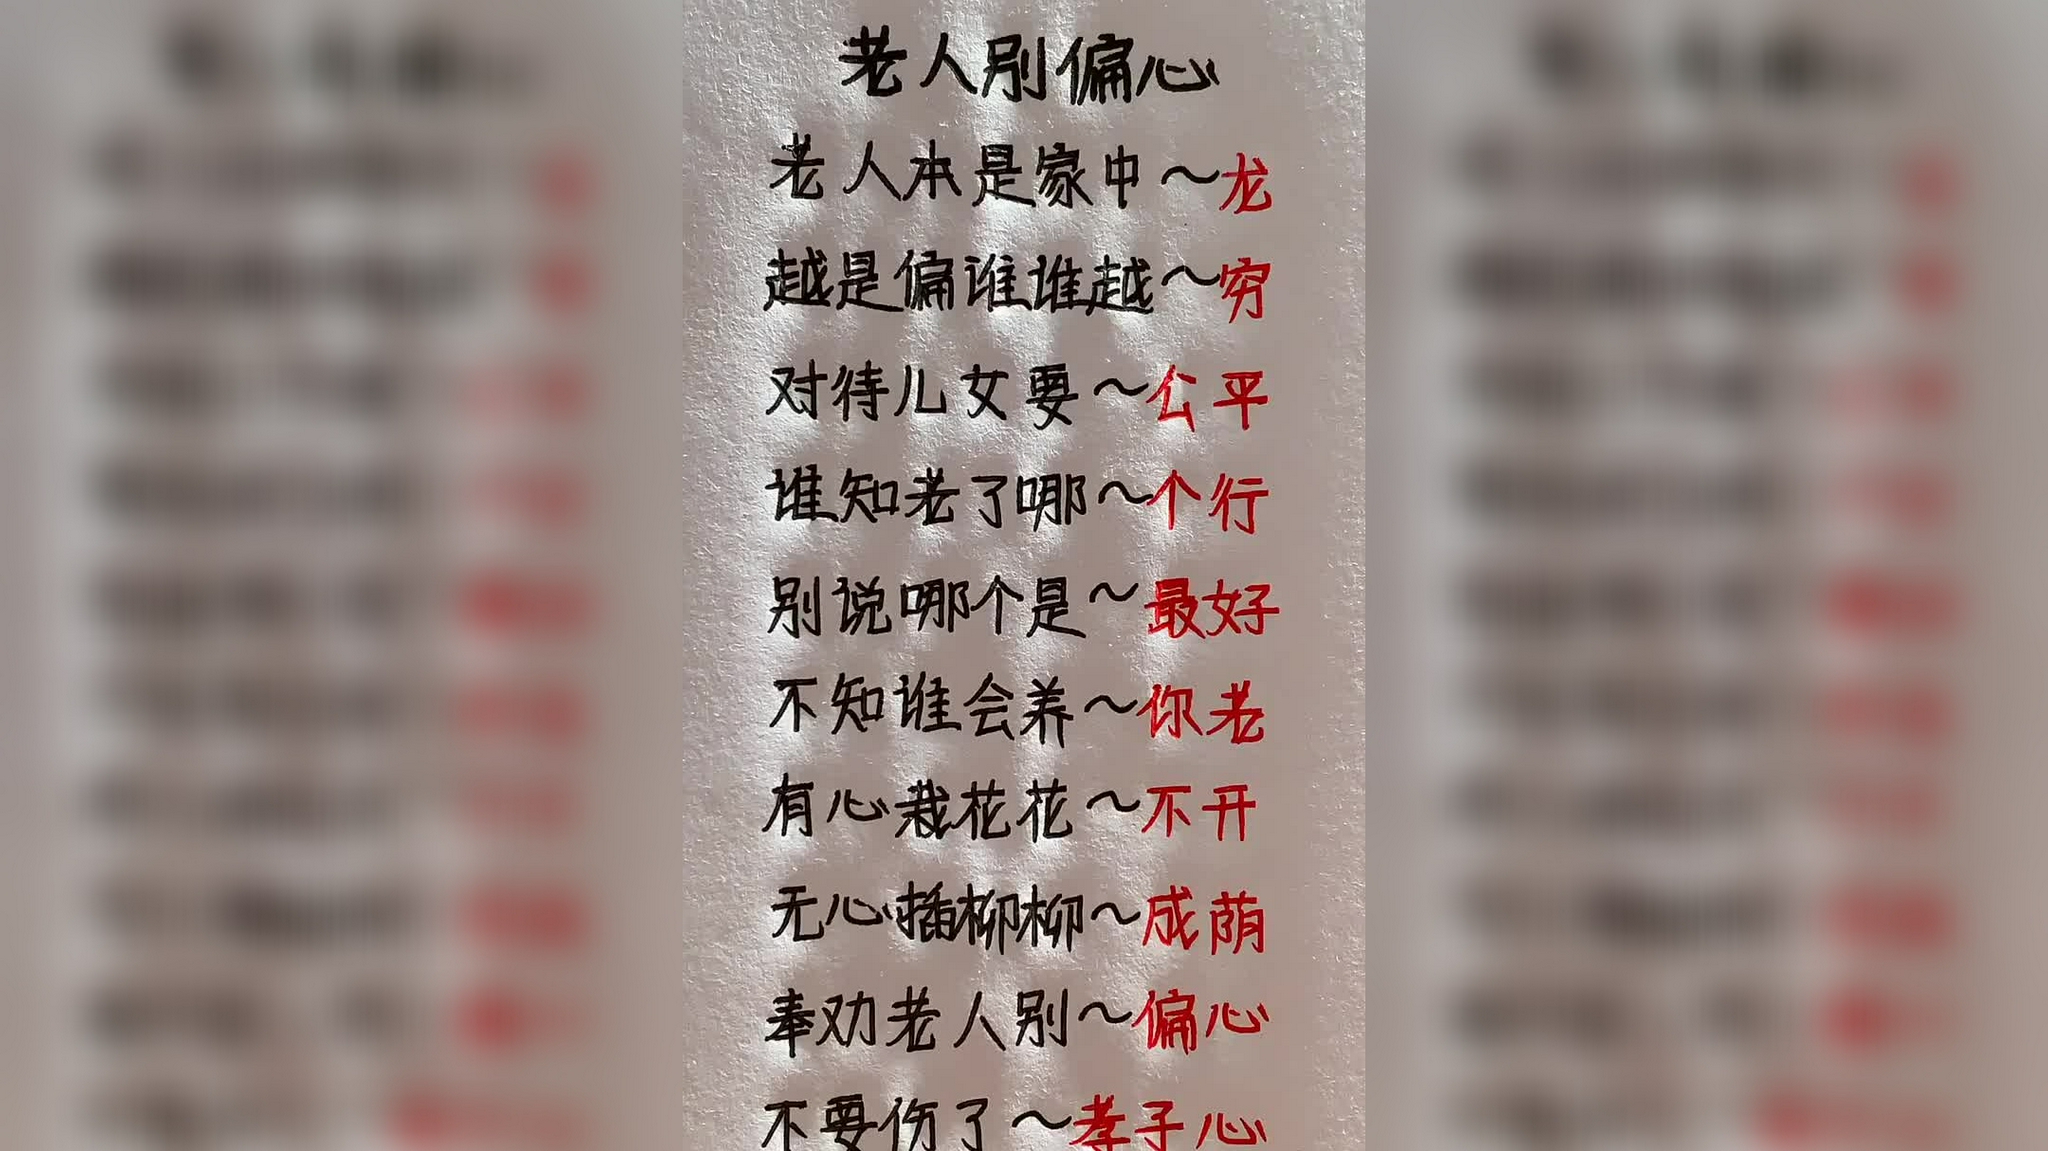 老人别偏心
老人本是家中~龙
越是偏谁谁越~穷
对待儿女要~公平
谁知老了哪~个行
别说哪个是~最好
不知谁会养~你老
有心栽花花~不开
无心插柳柳~成荫
奉劝老人别~偏心
不要伤了~孝子心